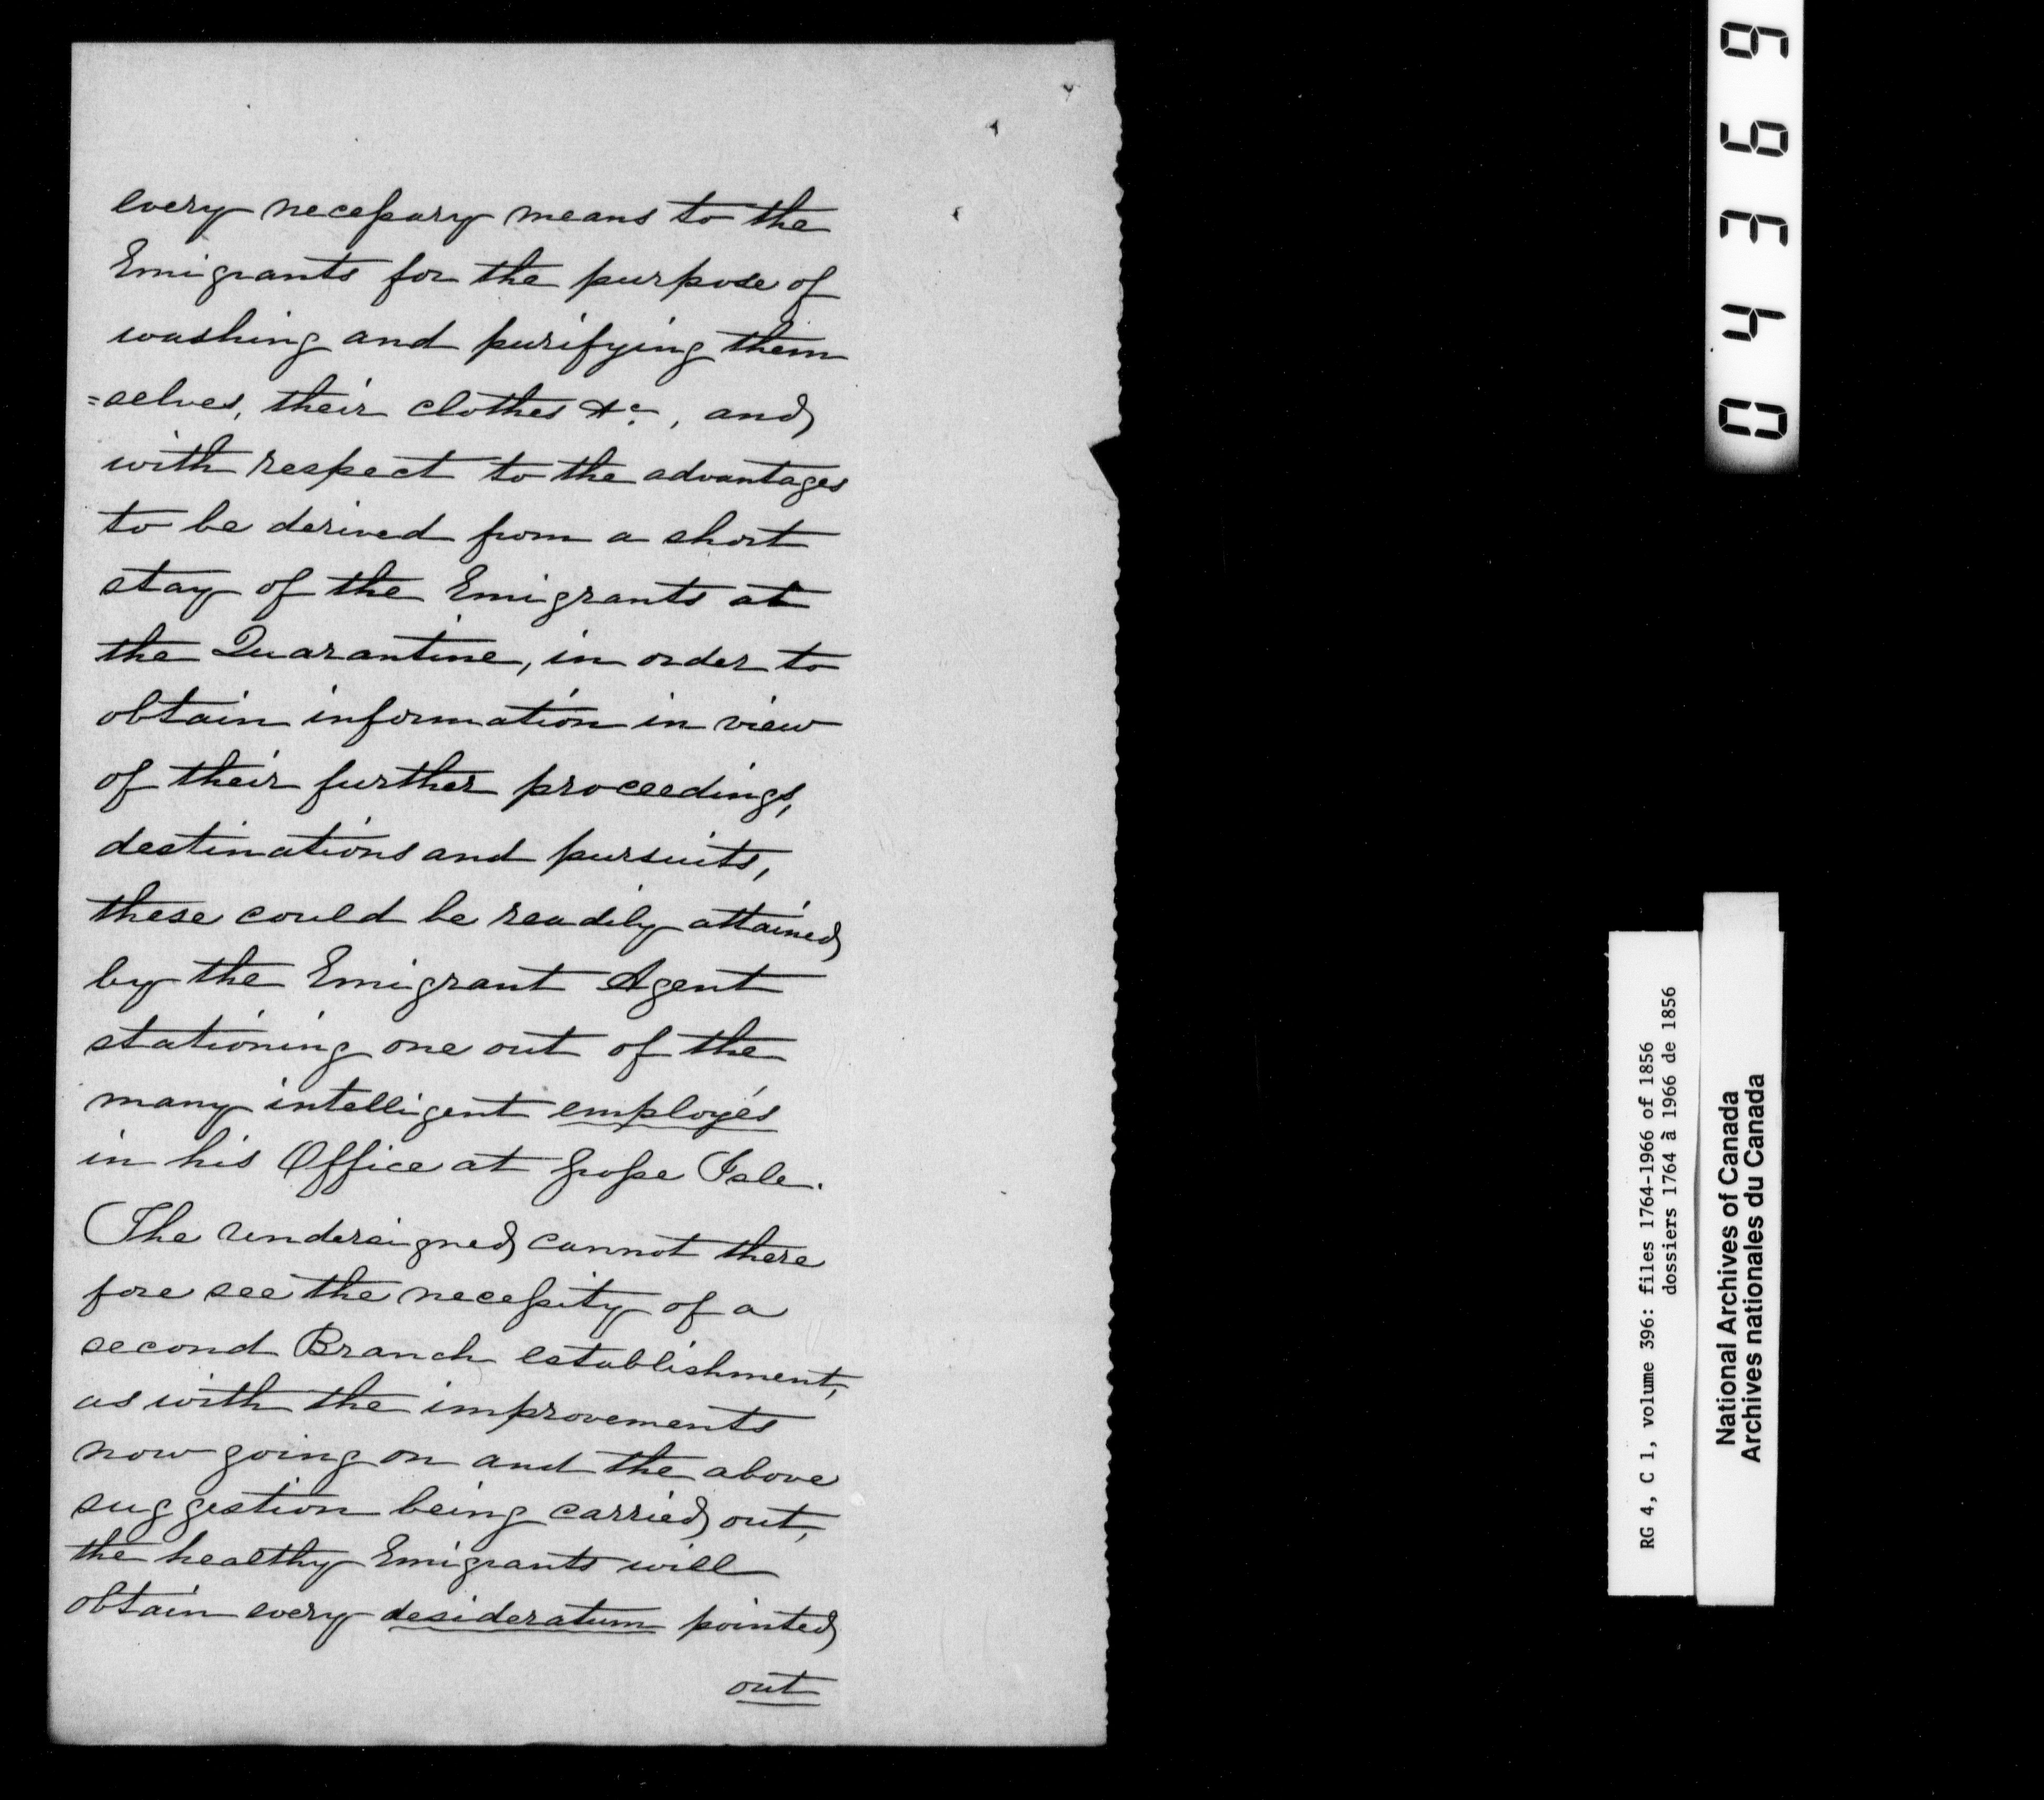 every necessary means to the
Emigrants for the purpose of
washing and purifying them
=selves, their clothes &c, and
with respect to the advantages
to be derived from a short
stay of the Emigrants at
the Quarantine, in order to
obtain information in view
of their further proceedings,
destinations and pursuits,
these could be readily attained
by the Emigrant Agent
stationing one out of the
many intelligent employés
in his Office at Grosse Isle.
The undersigned cannot there
fore see the necessity of a
second Branch establishment,
as with the improvements
now going on and the above
suggestion being carried out,
the healthy Emigrants will
obtain every desideratum pointed
out
04369
RG 4, C 1, volume 396: files 1764-1966 of 1856
dossiers 1764 à 1966 de 1856
National Archives of Canada
Archives nationales du Canada